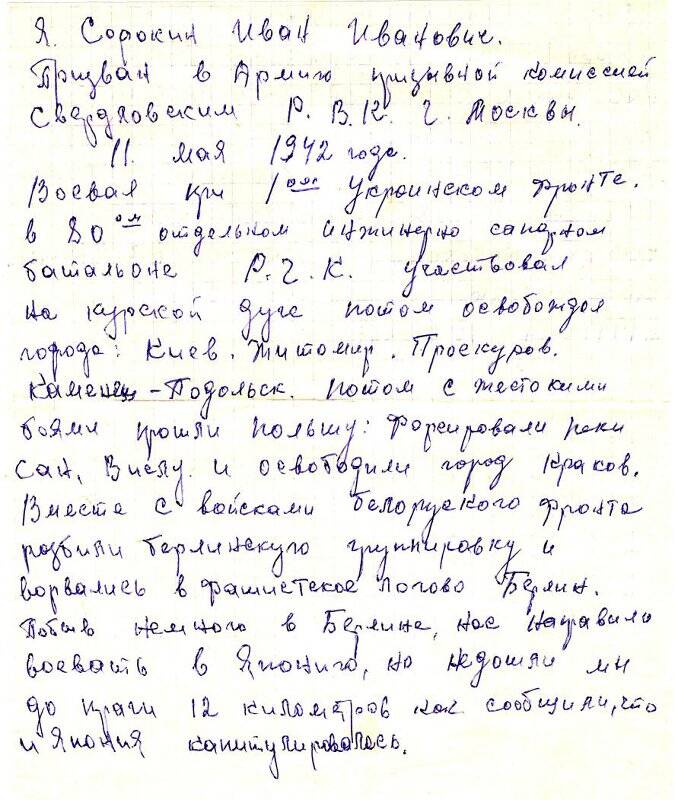 Я. Сорокин Иван Иванович.
Призван в Армию призывной комиссией
Свердловским Р. В. К. г. Москвы.
11. мая 1942 года.
Воевал при 1ом Украинском фронте.
в 80ом отдельном инжинерно саперном
батальоне Р. Г. К. участвовал
на курской дуге потом освобождал
города: Киев. Житомир. Проскуров.
Каменец-Подольск. потом с жестокими
боями прошли Польшу: Форсировали реки
Сан, Вислу и освободили город Краков.
Вместе с войсками белоруского фронта
розбили берлинскую группировку и
ворвались в фашистское логово Берлин.
Побыв немного в Берлине, нас направили
воевать в Японию, но недошли мы
до праги 12 километров как сообщили, что
и Япония капитулировалась.